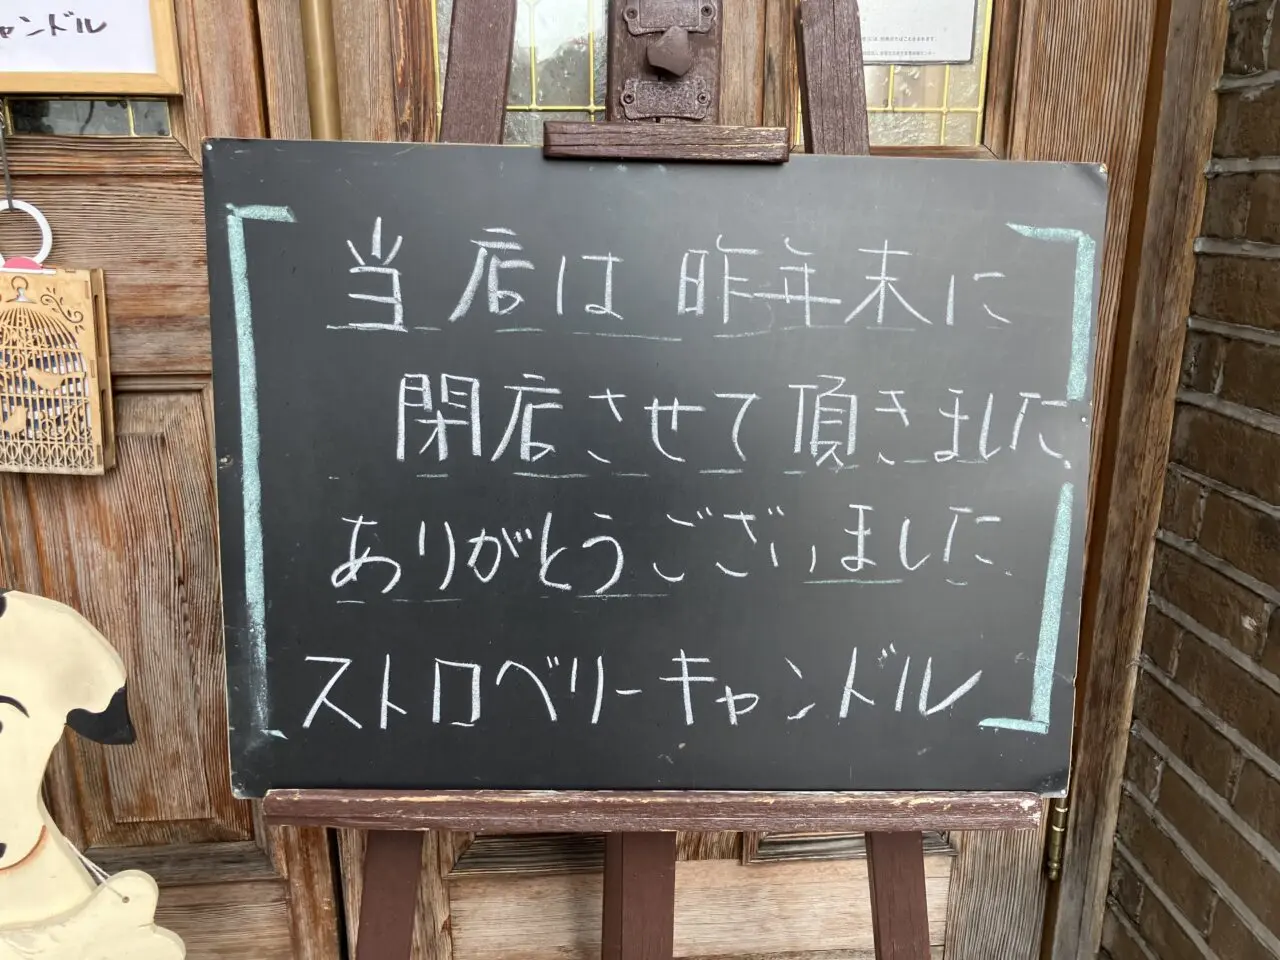 ャンドル
当店は昨年末に
閉店させて頂きました.
ありがとうございました.
ストロベリーキャンドル